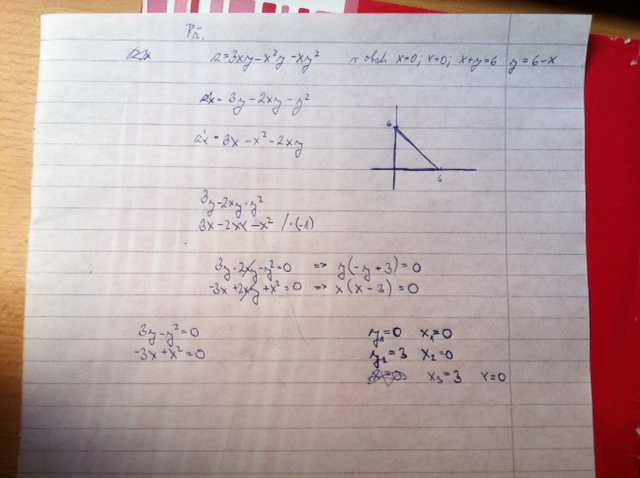 Př.
z = 3xy - x²y - xy² v obl. x=0; y=0; x+y=6 y=6-x
z'x = 3y - 2xy - y²
z'y = 3x - x² - 2xy
6
6
3y - 2xy - y²
3x - 2xy - x² /·(-1)
3y - 2xy - y² = 0 => y(-y+3) = 0
-3x + 2xy + x² = 0 => x(x-3) = 0
3y - y² = 0 y₁=0 x₁=0
-3x + x² = 0 y₂=3 x₂=0
x₃=3 y=0